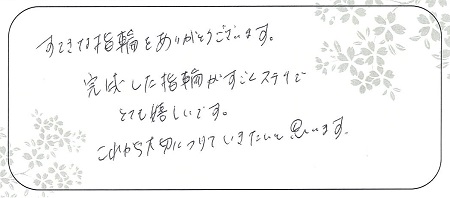 すてきな指輪をありがとうございます。
完成した指輪がすごくステキで
とても嬉しいです。
これから大切につけていきたいと思います。